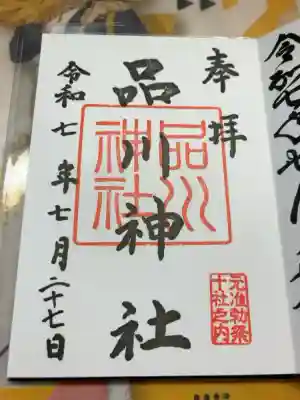 奉拝
品川神社
品川
神社
令和七年七月二十七日
元准勅祭
十社之内